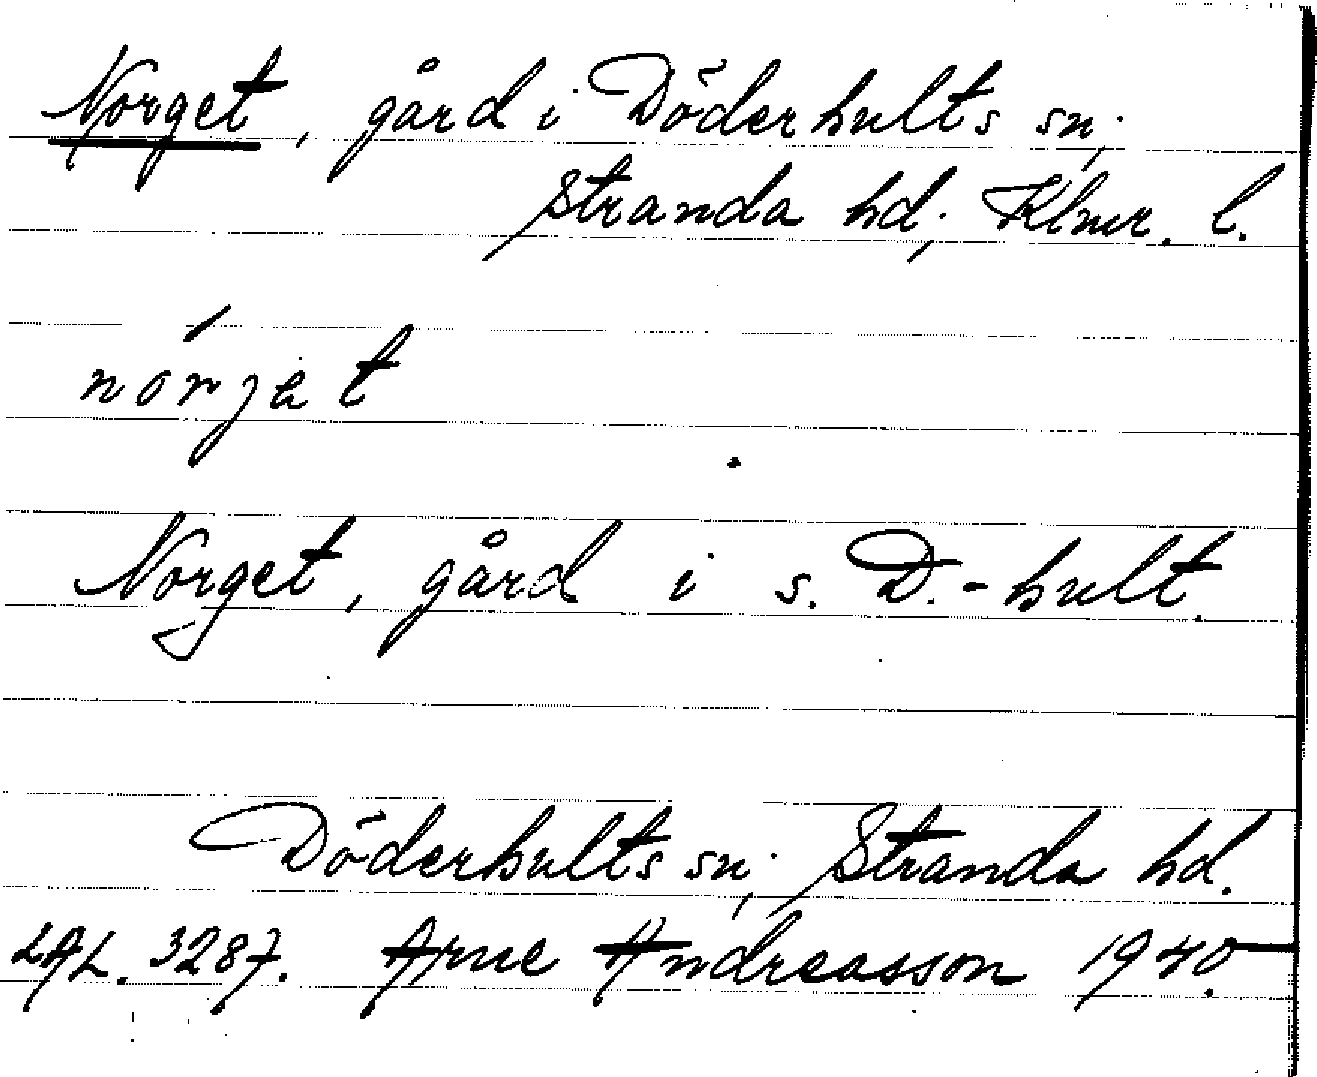 Norget, gård i Döderhults sn,
Stranda hd, Klmr. l.
nórjet
Norget, gård i s. D.-hult.
Döderhults sn, Stranda hd.
LAL. 3287. Arne Andreasson 1940.